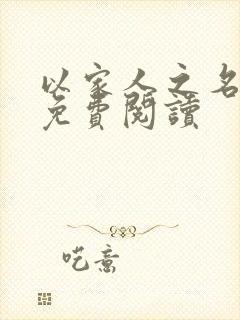 以家人之名
免費閱讀
呓意